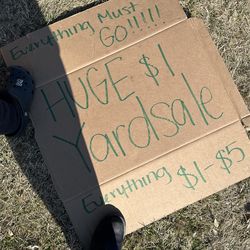 Everything Must
GO!!!!!
HUGE $1
Yardsale
Everything $1-$5